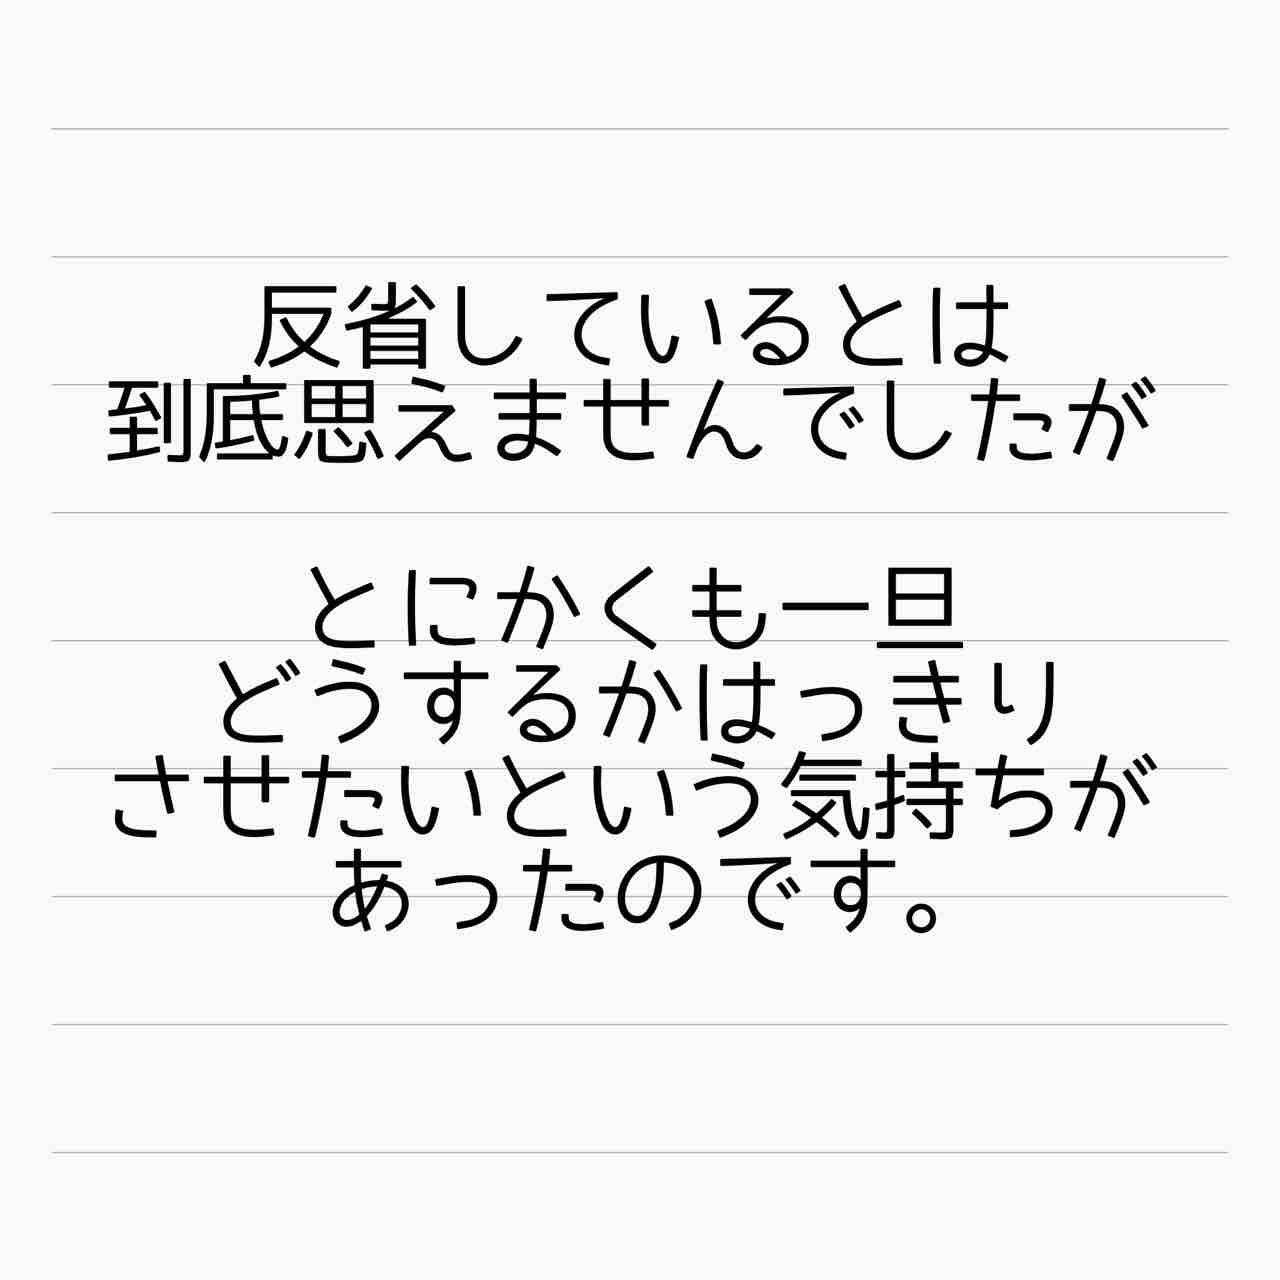 反省しているとは
到底思えませんでしたが
とにかくも一旦
どうするかはっきり
させたいという気持ちが
あったのです。